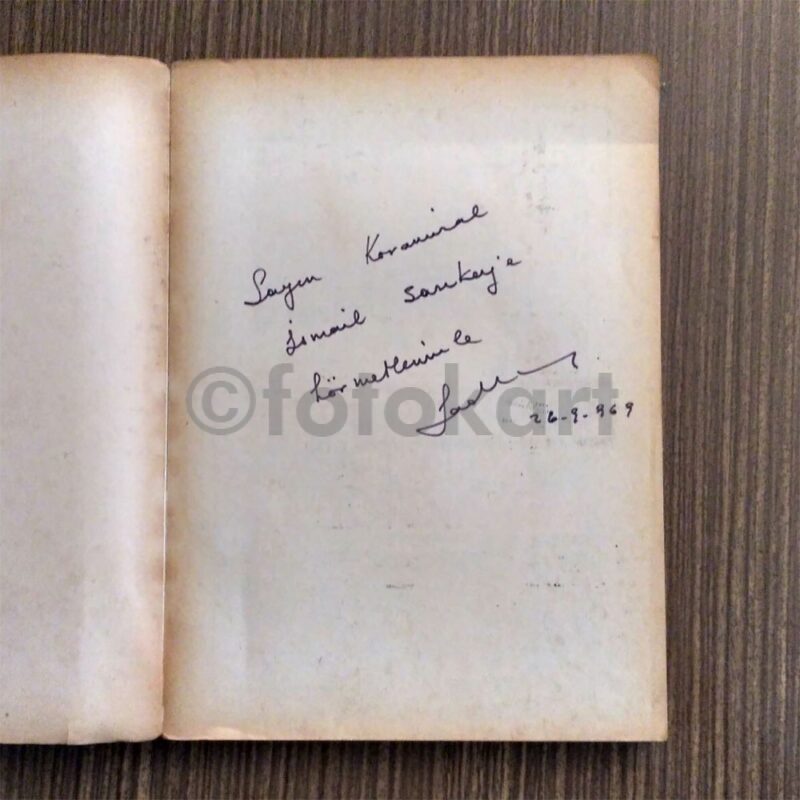 Sayın Koramiral
İsmail Sarıkey'e
hörmetlerimle
26-9-969
©fotokart